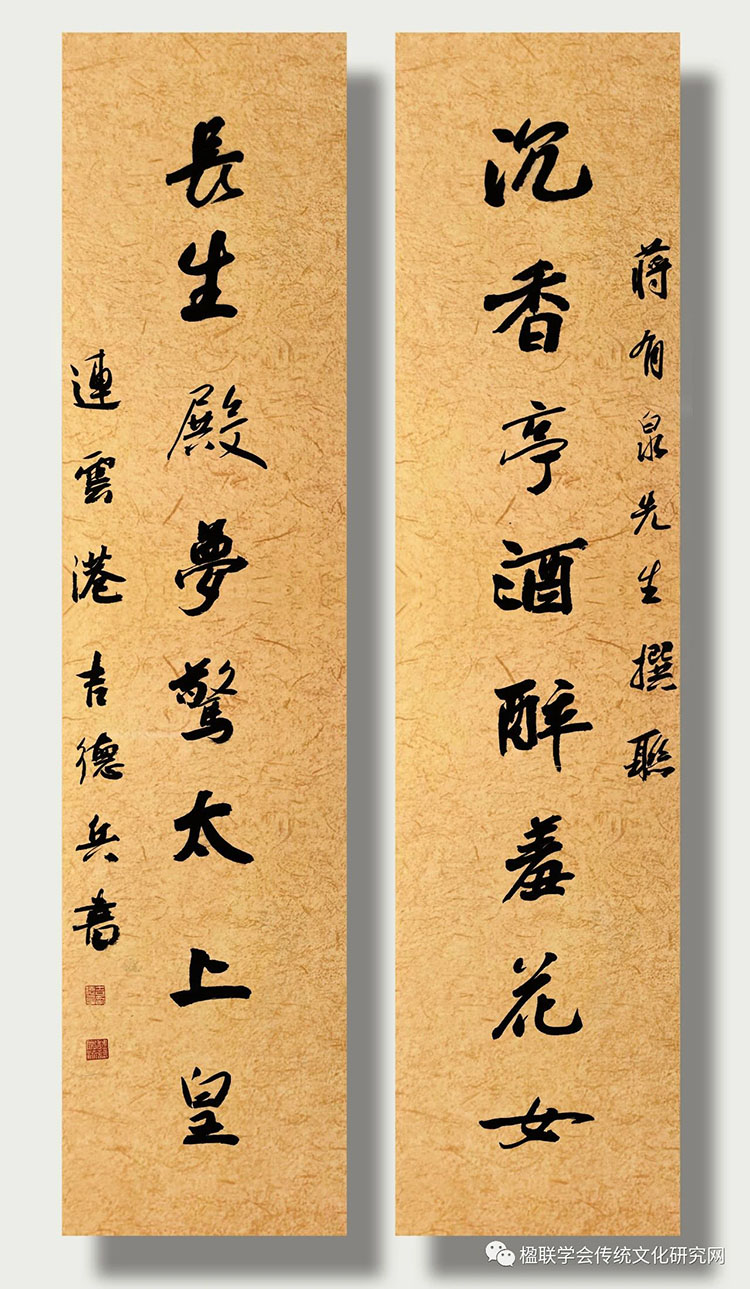 蔣有泉先生撰聯
沉香亭酒醉羞花女
長生殿夢驚太上皇
連雲港吉德兵書
楹联学会传统文化研究网